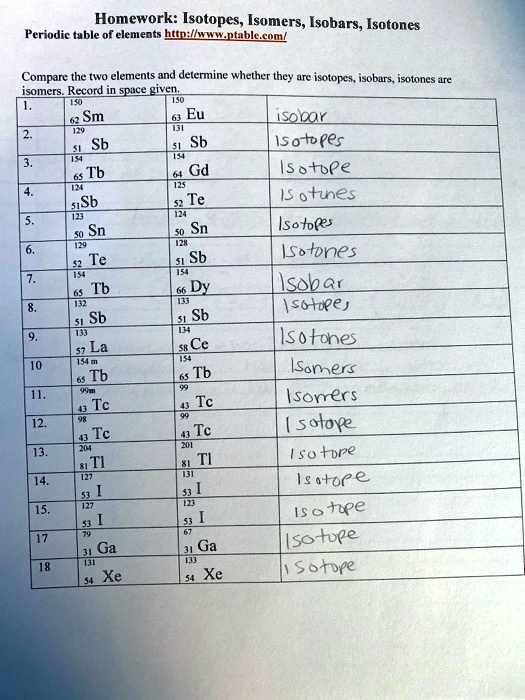 Homework: Isotopes, Isomers, Isobars, Isotones
Periodic table of elements http://www.ptable.com/
Compare the two elements and determine whether they are isotopes, isobars, isotones are
isomers. Record in space given.
1. 150 62 Sm 150 63 Eu isobar
2. 129 51 Sb 131 51 Sb Isotopes
3. 154 65 Tb 154 64 Gd Isotope
4. 124 51 Sb 125 52 Te Isotunes
5. 123 50 Sn 124 50 Sn Isotopes
6. 129 52 Te 128 51 Sb Isotones
7. 154 65 Tb 154 66 Dy Isobar
8. 132 51 Sb 133 51 Sb Isotopes
9. 133 57 La 134 58 Ce Isotones
10 154 m 65 Tb 154 65 Tb Isomers
11. 99m 43 Tc 99 43 Tc Isomers
12. 98 43 Tc 99 43 Tc Isotope
13. 204 81 Tl 201 81 Tl Isotope
14. 127 53 I 131 53 I Isotope
15. 127 53 I 123 53 I Isotope
17 79 31 Ga 67 31 Ga Isotope
18 131 54 Xe 133 54 Xe Isotope